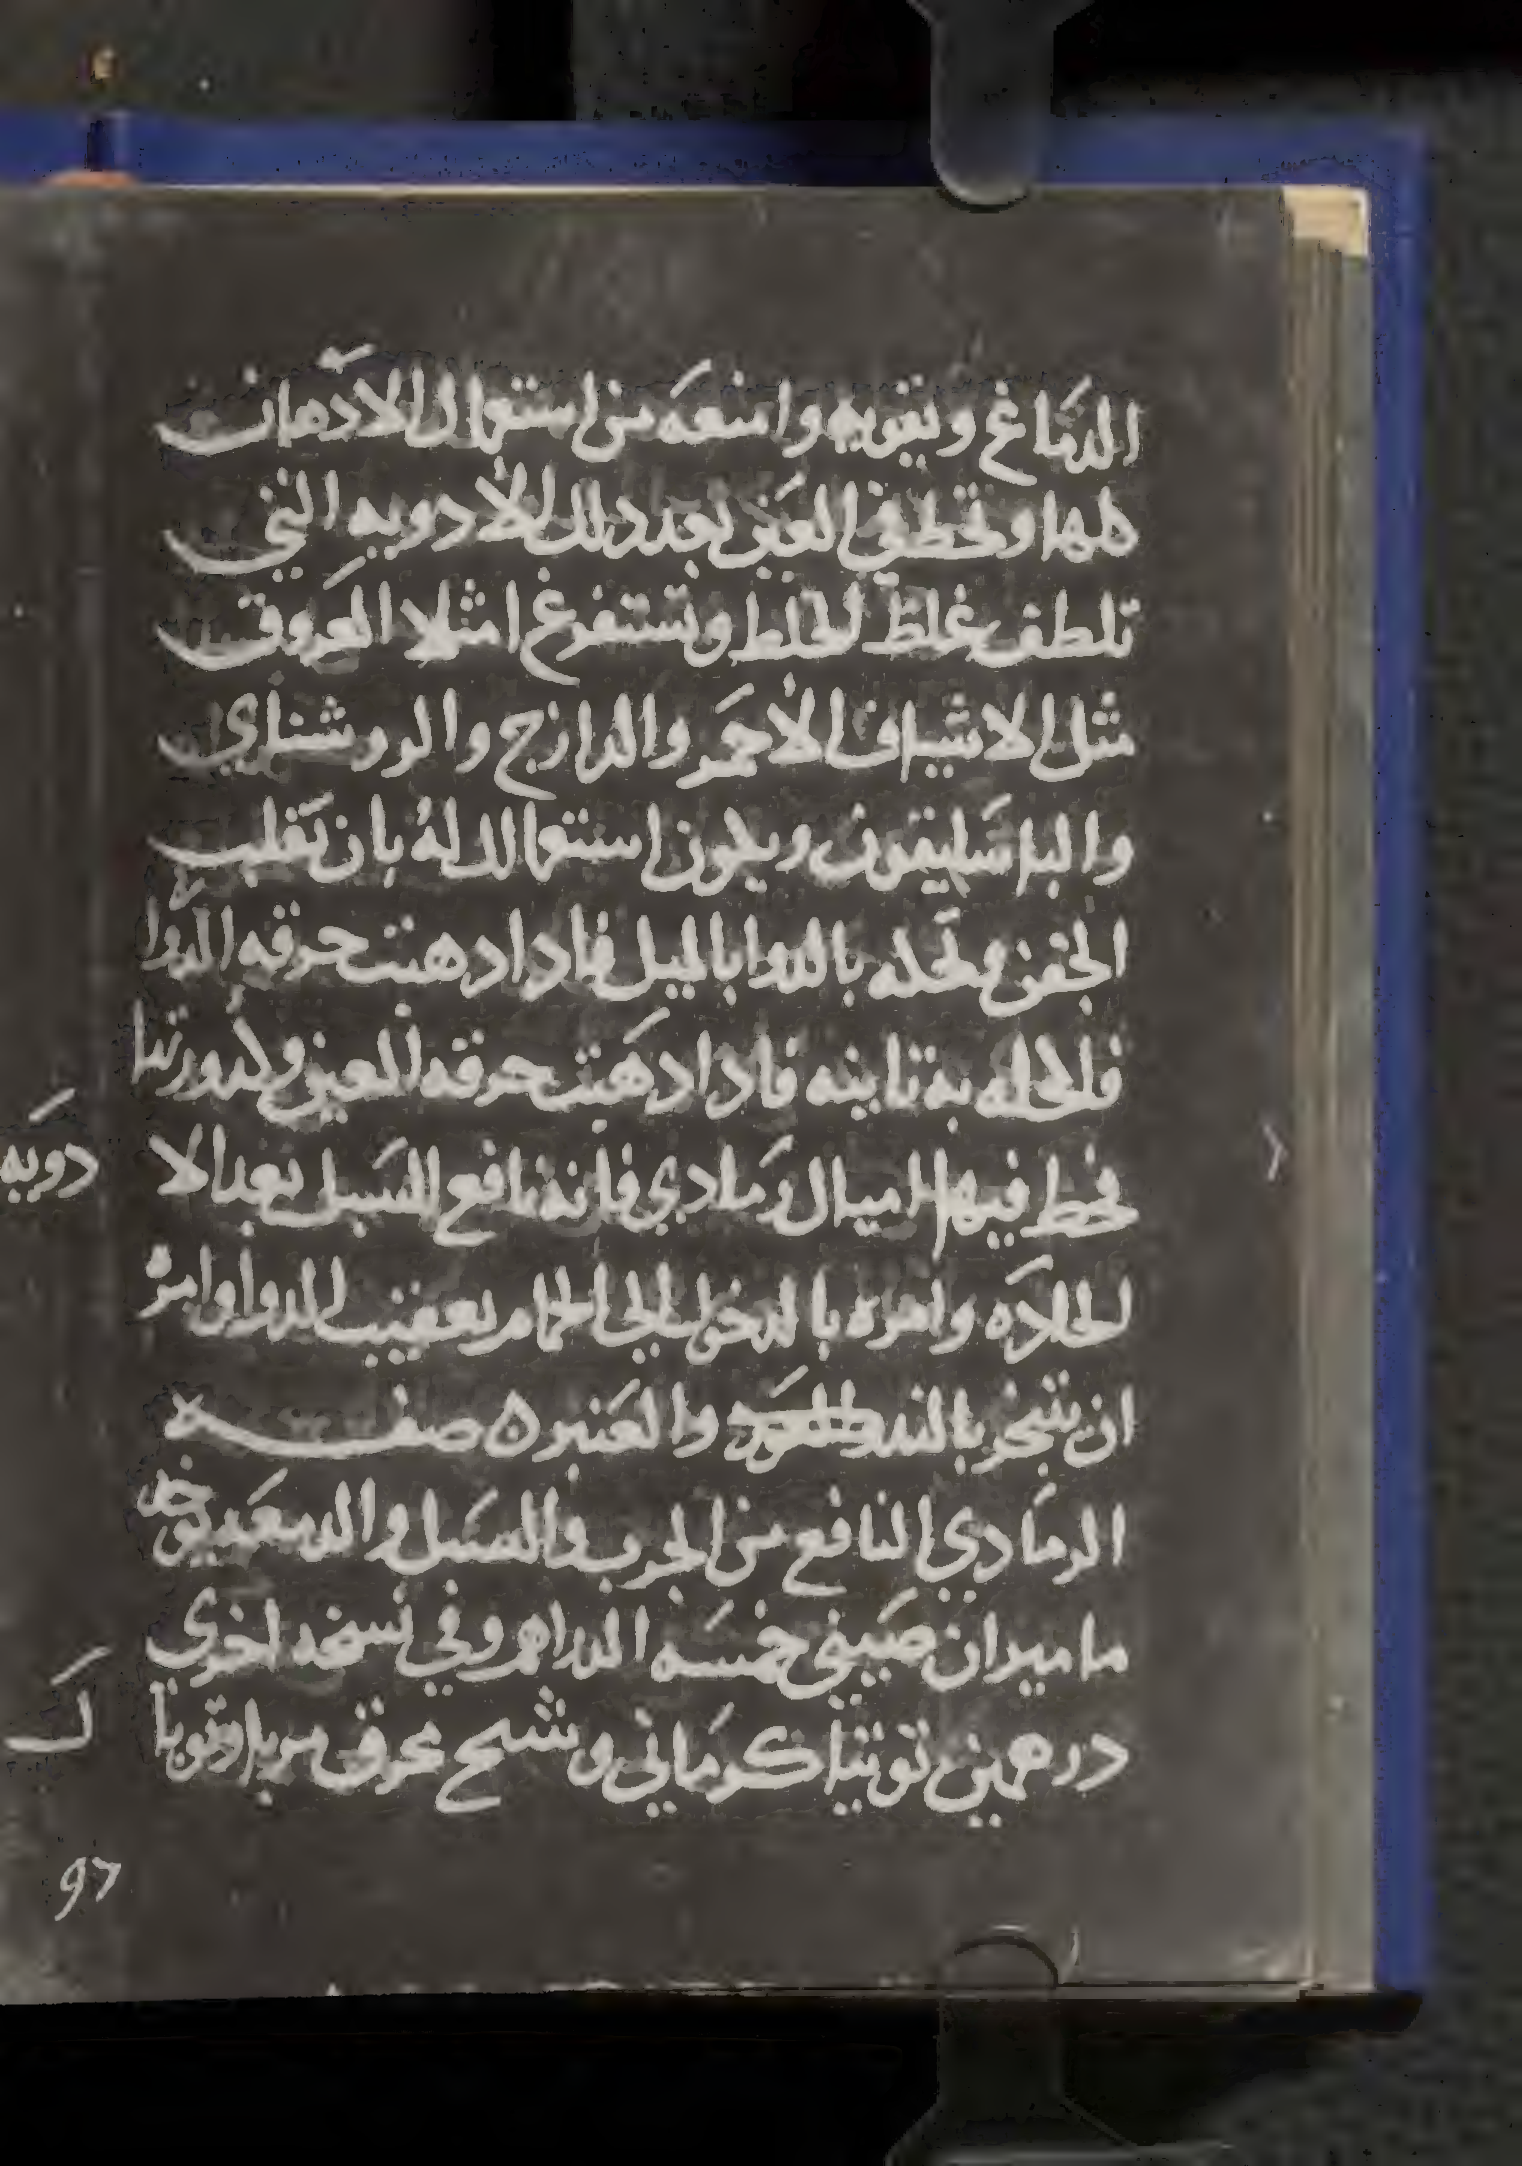 الدماغ وتقويه وامنعه من استعمال الادهان
كلها وتحط في العين بعد دلك الأدويه التي
تلطف غلظ الخلط وتستفرغ امتلا العروق
مثل الاشياف الأحمر والدارزج والروشناي
والباسليقون ويكون استعمالك لهُ بان تقلب
الجفن وتحكه بالدوا بالميل فادا دهبت حرقه الدوا
فاكحله به تانيه فادا دهبت حرقه العين وكدورتها
فحط فيها اميال رمادي فانه نافع للسبل بعد الا
دويه
الحاده وامره بالدخول الي الحمام بعقيب الدوا وامره
ان يتبخر بالند والعنبر ه صفه
الرمادي النافع من الجرب والسبل والدمعه يوخد
ماميران صيني خمسه الدراهم وفي نسخه اخري
درهمين توتيا كرماني وشيح محرق مربا وتوبا
ك
97